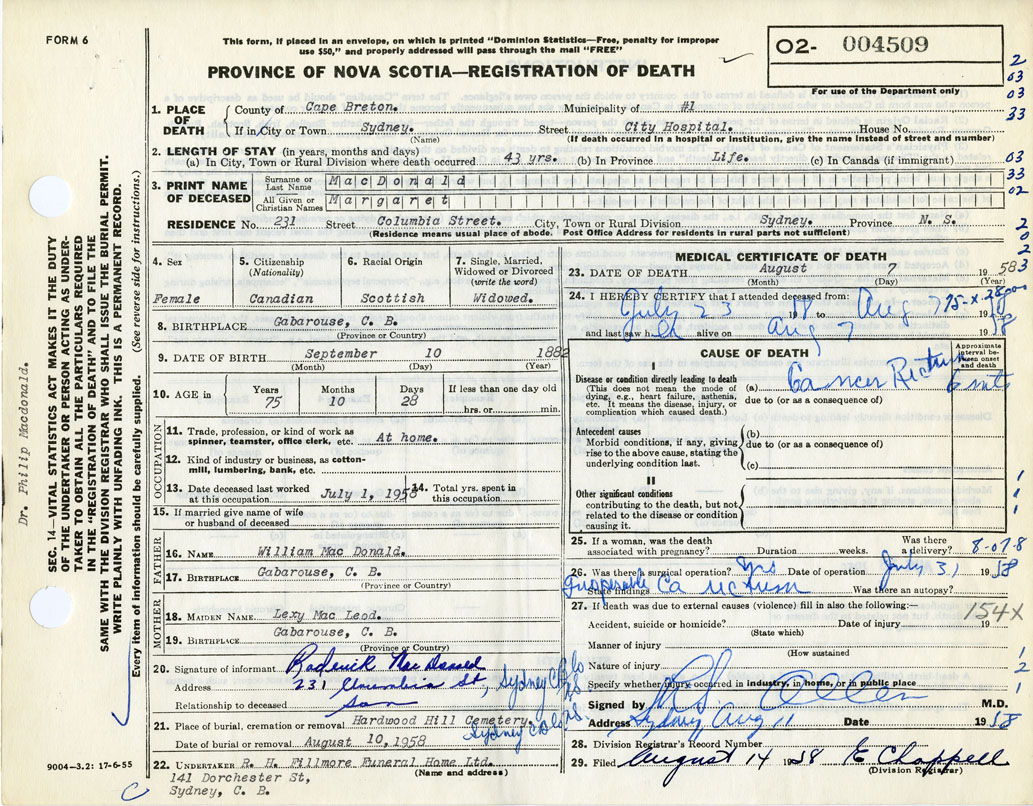 FORM 6
This form, if placed in an envelope, on which is printed "Dominion Statistics—Free, penalty for improper
use $50," and properly addressed will pass through the mail "FREE"
PROVINCE OF NOVA SCOTIA—REGISTRATION OF DEATH
02- 004509
For use of the Department only
2
03
03
33
1. PLACE OF DEATH
County of Cape Breton. Municipality of #1
If in City or Town Sydney. Street City Hospital. House No.
(Name) (If death occurred in a hospital or institution, give the name instead of street and number)
2. LENGTH OF STAY (in years, months and days)
(a) In City, Town or Rural Division where death occurred 43 yrs. (b) In Province Life. (c) In Canada (if immigrant)
03
33
02
3. PRINT NAME OF DECEASED
Surname or Last Name MacDonald
All Given or Christian Names Margaret
RESIDENCE No. 231 Street Columbia Street. City, Town or Rural Division Sydney. Province N. S.
(Residence means usual place of abode. Post Office Address for residents in rural parts not sufficient)
2
0
2
3
4. Sex
Female
5. Citizenship
(Nationality)
Canadian
6. Racial Origin
Scottish
7. Single, Married,
Widowed or Divorced
(write the word)
Widowed.
8. BIRTHPLACE Gabarouse, C. B.
(Province or Country)
9. DATE OF BIRTH September 10 1882
(Month) (Day) (Year)
10. AGE in
Years Months Days If less than one day old
75 10 28 hrs. or min.
OCCUPATION
11. Trade, profession, or kind of work as
spinner, teamster, office clerk, etc. At home.
12. Kind of industry or business, as cotton-
mill, lumbering, bank, etc.
13. Date deceased last worked
at this occupation July 1, 1958
14. Total yrs. spent in
this occupation
15. If married give name of wife
or husband of deceased
FATHER
16. NAME William Mac Donald.
17. BIRTHPLACE Gabarouse, C. B.
(Province or Country)
MOTHER
18. MAIDEN NAME Lexy Mac Leod.
19. BIRTHPLACE Gabarouse, C. B.
(Province or Country)
20. Signature of informant Roderick MacDonald
Address 231 Columbia St, Sydney
Relationship to deceased Son
21. Place of burial, cremation or removal Hardwood Hill Cemetery.
Sydney
Date of burial or removal August 10, 1958
22. UNDERTAKER R. H. Fillmore Funeral Home Ltd.
(Name and address)
141 Dorchester St,
Sydney, C. B.
9004-3.2: 17-6-55
MEDICAL CERTIFICATE OF DEATH
23. DATE OF DEATH August 7 1958
(Month) (Day) (Year)
24. I HEREBY CERTIFY that I attended deceased from:
July 23 1958 to Aug 7 1958
75-X-28
and last saw her alive on Aug 7 1958
CAUSE OF DEATH
Approximate
interval be-
tween onset
and death
I
Disease or condition directly leading to death
(This does not mean the mode of
dying, e.g., heart failure, asthenia,
etc. It means the disease, injury, or
complication which caused death.)
(a) Cancer Rectum 6 mts
due to (or as a consequence of)
Antecedent causes
Morbid conditions, if any, giving
rise to the above cause, stating the
underlying condition last.
(b)
due to (or as a consequence of)
(c)
II
Other significant conditions
contributing to the death, but not
related to the disease or condition
causing it.
1
1
1
25. If a woman, was the death
associated with pregnancy? Duration weeks. Was there
a delivery?
8-07-8
26. Was there a surgical operation? Yes Date of operation July 31 1958
State findings Inoperable Ca rectum Was there an autopsy?
27. If death was due to external causes (violence) fill in also the following:—
154X
Accident, suicide or homicide? Date of injury 19
(State which)
Manner of injury
(How sustained
Nature of injury
1
2
Specify whether injury occurred in industry, in home, or in public place
1
Signed by M.D.
Address Sydney Aug 11 Date 1958
28. Division Registrar's Record Number
29. Filed August 14 1958 E Chappell
(Division Registrar)
Dr. Philip Macdonald.
SEC. 14—VITAL STATISTICS ACT MAKES IT THE DUTY
OF THE UNDERTAKER OR PERSON ACTING AS UNDER-
TAKER TO OBTAIN ALL THE PARTICULARS REQUIRED
IN THE "REGISTRATION OF DEATH" AND TO FILE THE
SAME WITH THE DIVISION REGISTRAR WHO SHALL ISSUE THE BURIAL PERMIT.
WRITE PLAINLY WITH UNFADING INK. THIS IS A PERMANENT RECORD.
Every item of information should be carefully supplied. (See reverse side for instructions.)